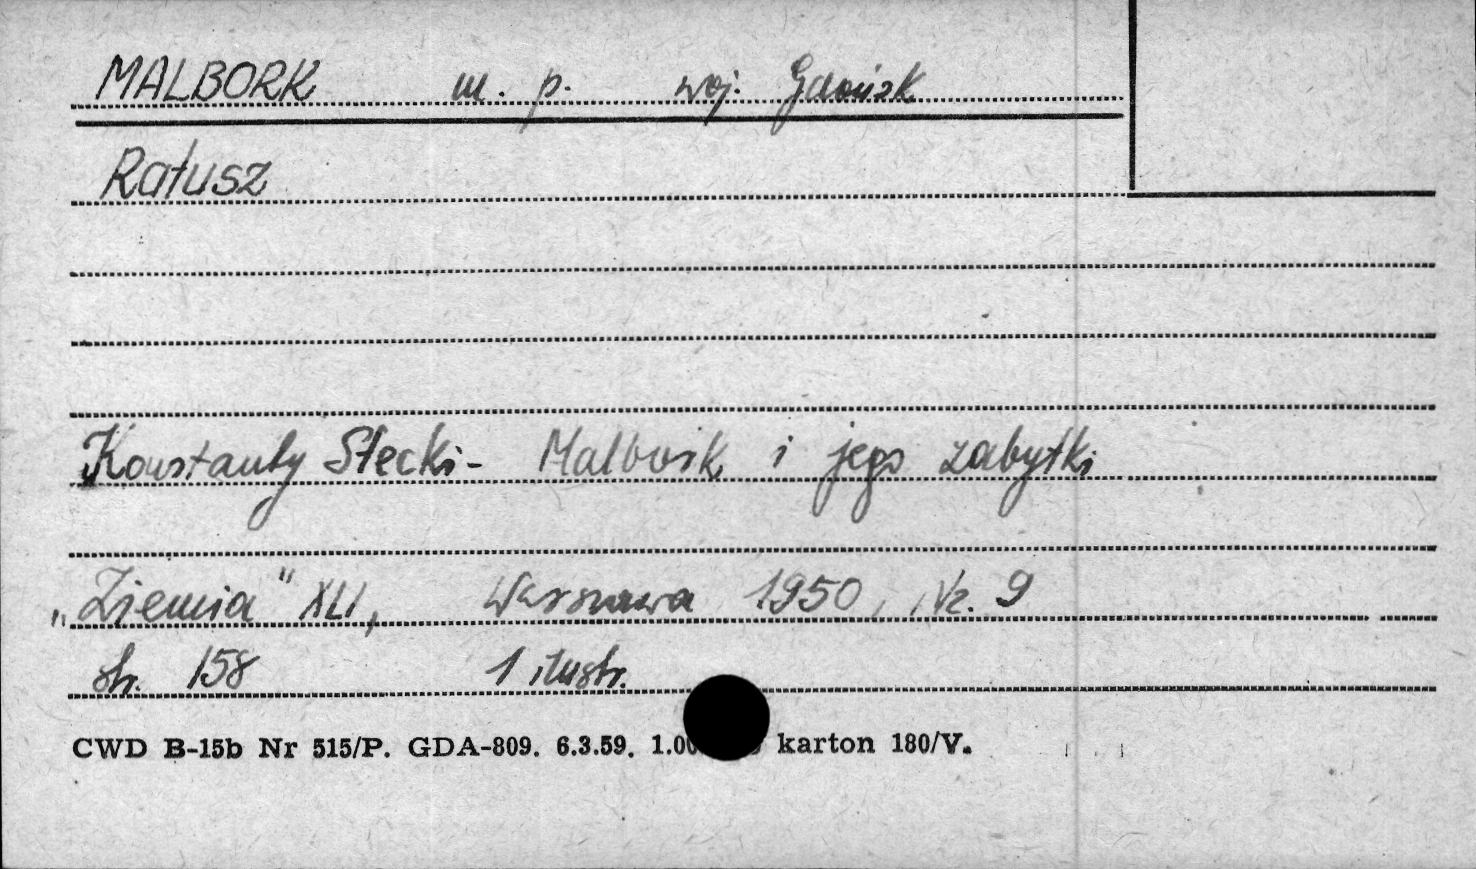 MALBORK m. p. woj. Gdańsk
Ratusz
Konstanty Stecki - Malbork i jego zabytki
„Ziemia" XLI, Warszawa 1950, Nr. 9
str. 158 1 ilustr.
CWD B-15b Nr 515/P. GDA-809. 6.3.59. 1.00 karton 180/V.